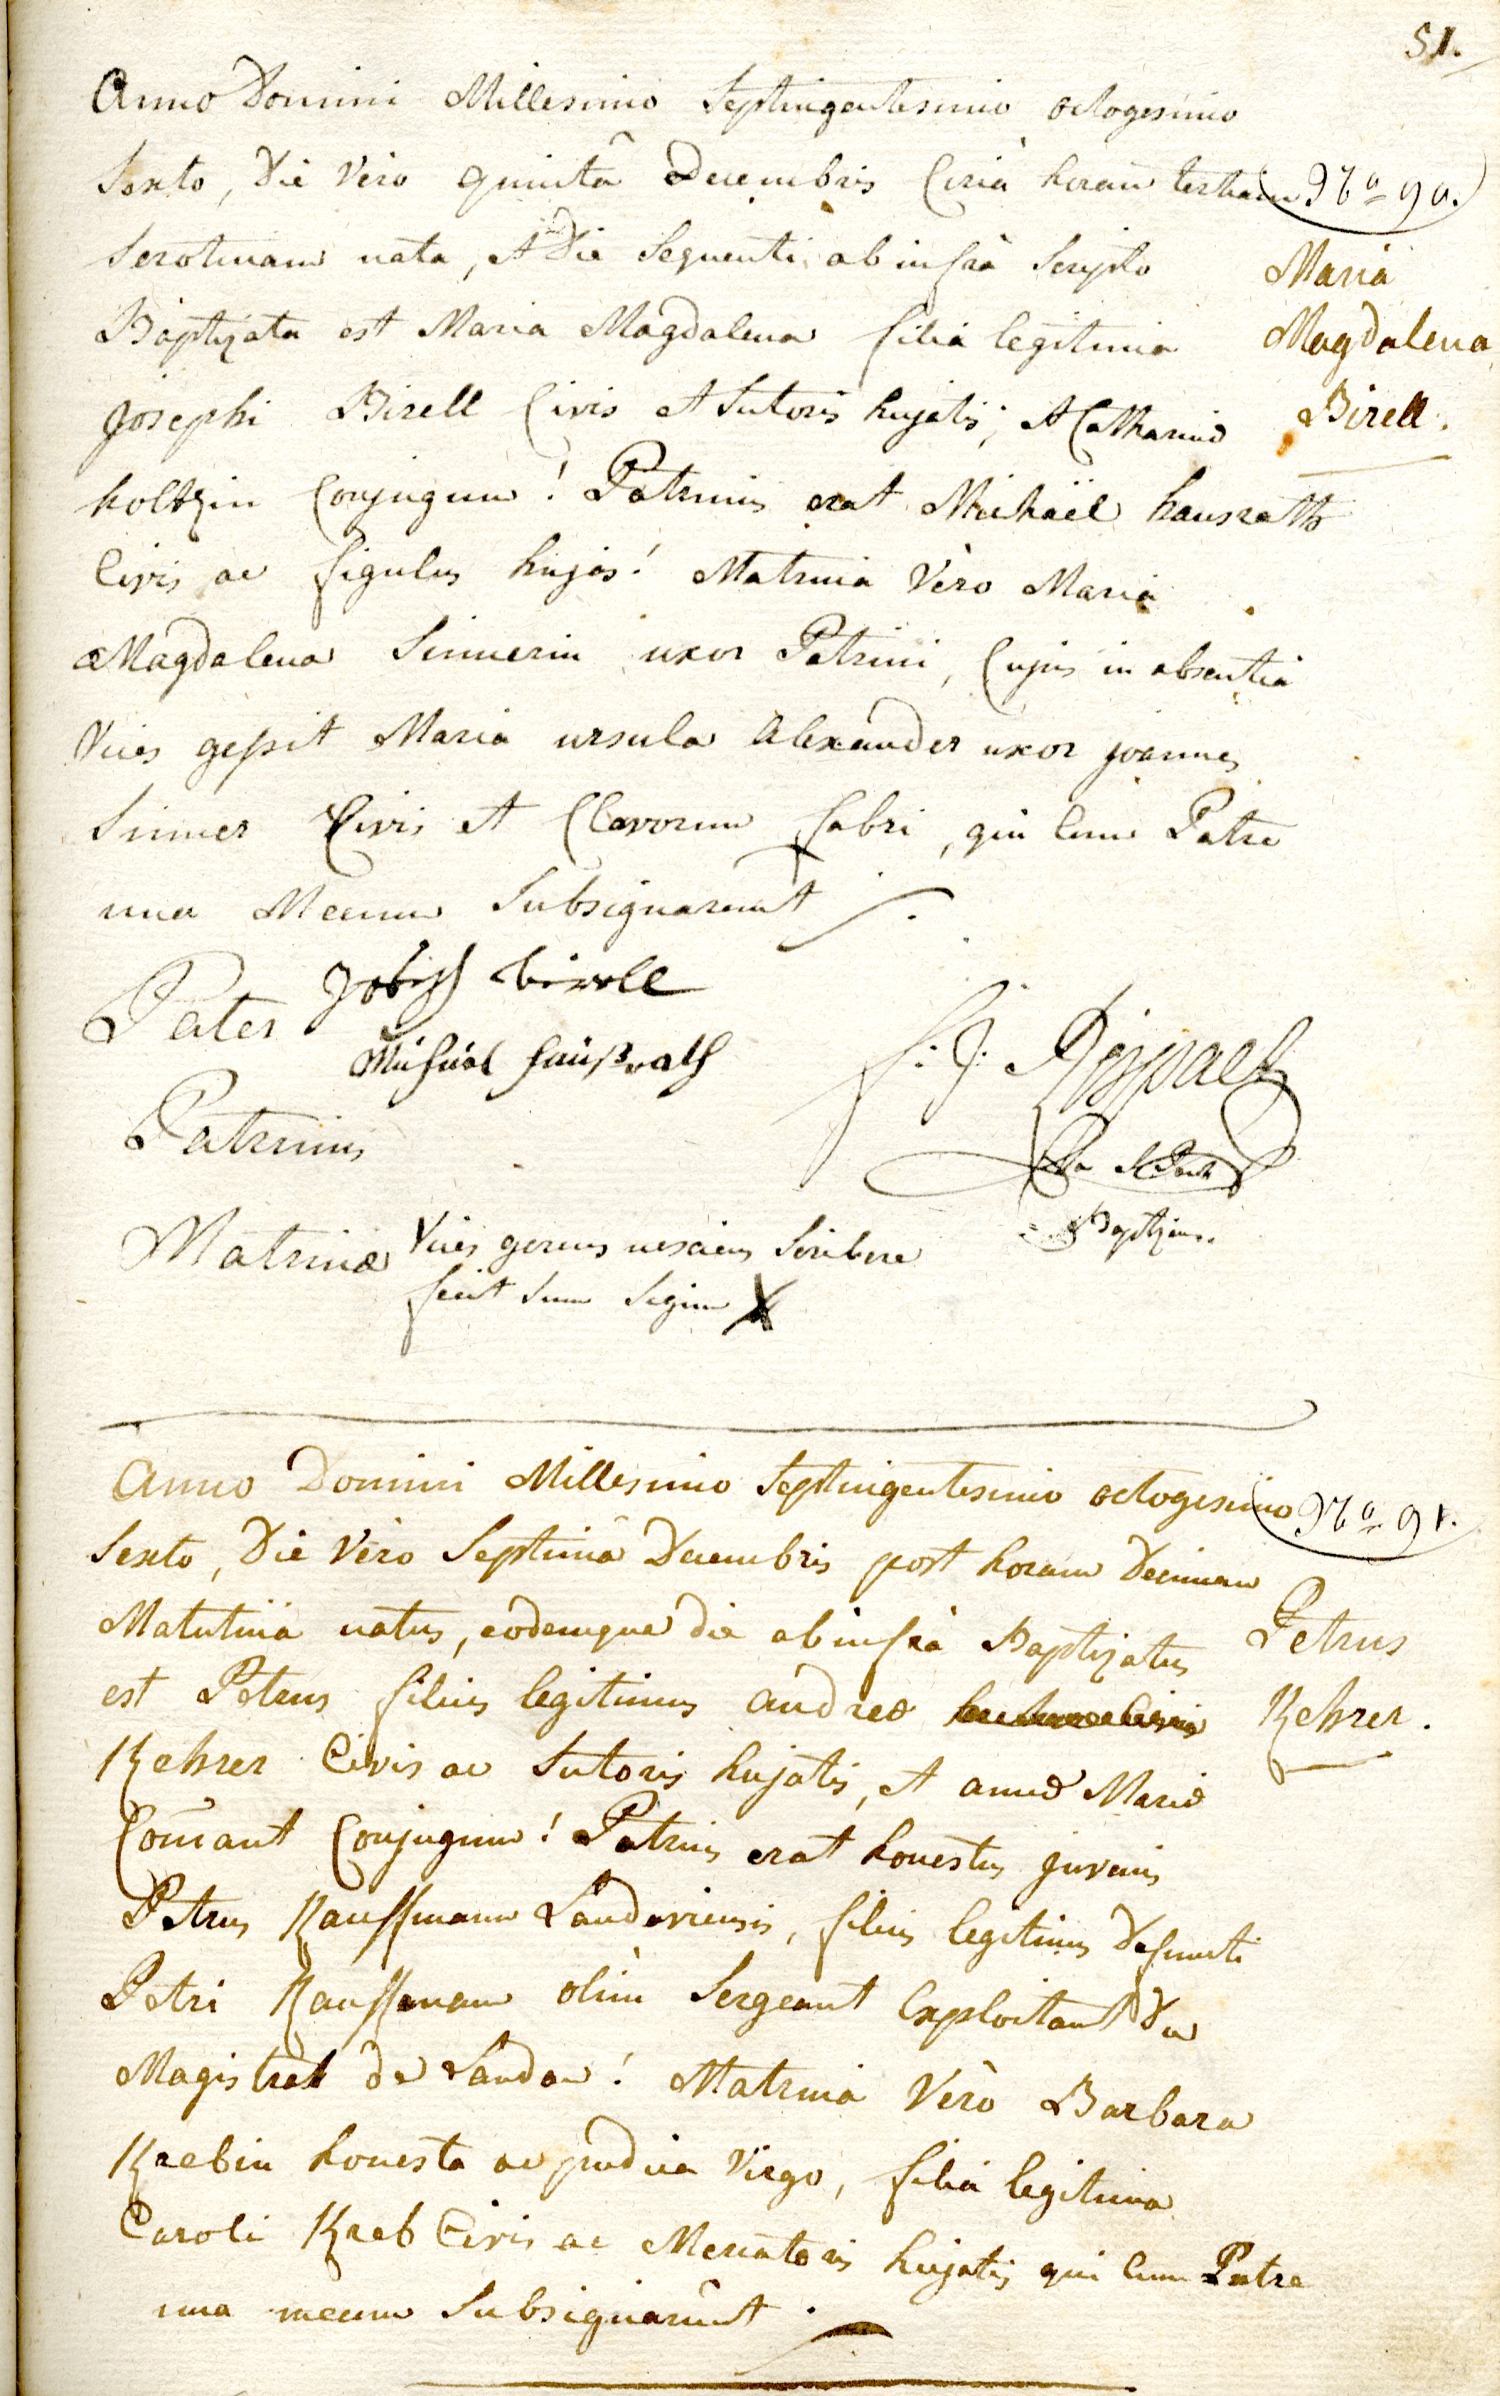 51.
Anno Domini Millesimo Septingentesimo octogesimo
Sexto, Die vero quintâ Decembris Circà horam tertiam
Nro 90.
Serotinam nata, et Die Sequenti ab infrà Scripto
Baptizata est Maria Magdalena filia legitima
Josephi Birell Civis et Sutoris hujatis, et Catharinæ
Maria
Magdalena
Birell.
holtzin Conjugum! Patrinus erat Michaël hausrath
Civis ac figulus hujas! Matrina Vèro Maria
Magdalena Sinnerin uxor Patrini, Cujus in absentia
Vices gessit Maria ursula Alexander uxor joannes
Sinner Civis et Clavorum fabri, qui Cum Patre
una Mecum Subsignarunt
Pater Joseph birell
Michael haußrath
Patrinus
Matrinæ Vices gerens nesciens Scribere
fecit suum Signum X
Baptizans.
Anno Domini Millesimo Septingentesimo octogesimo
Nro 91.
Sexto, Die Vèro Septimâ Decembris post horam Decimam
Matutina natus, eodemque die ab infrà Baptizatus
est Petrus filius legitimus andreæ
Kehrer Civis ac Sutoris hujatis, et annæ Mariæ
Petrus
Kehrer.
Com̄ant Conjugum! Patrinus erat honestus juvenis
Petrus Kauffmann Landaviensis, filius legitimus Defuncti
Petri Kauffmann olim Sergeant Exploitant du
Magistrat de Landau! Matrina Vèrò Barbara
Krebin honesta ac pudica Virgo, filia legitima
Caroli Kreb Civis ac Mercatoris hujatis qui Cum Patre
una mecum Subsignarunt.